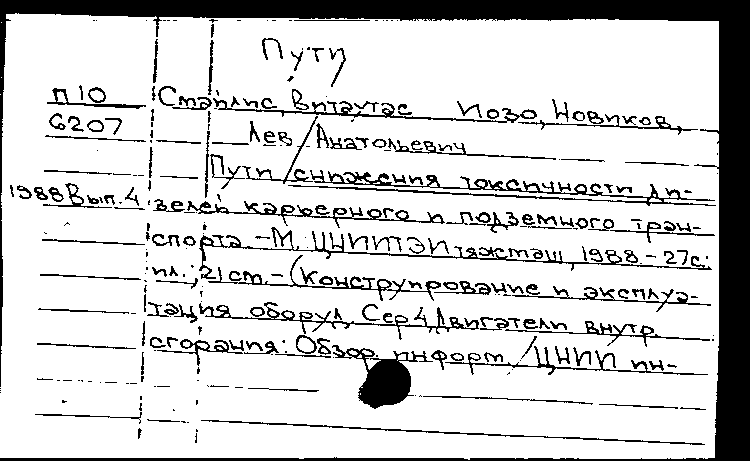 Пути
П10 Смайлис, Витаутас Йозо, Новиков,
6207 Лев Анатольевич
Пути / снижения токсичности ди-
1988 Вып. 4 зелей карьерного и подземного тран-
спорта. - М. ЦНИИТЭИтяжмаш, 1988 - 27с.:
ил.; 21 см. - (Конструирование и эксплуа-
тация оборуд. Сер 4, Двигатели внутр.
сгорания: Обзор. информ. / ЦНИИ ин-